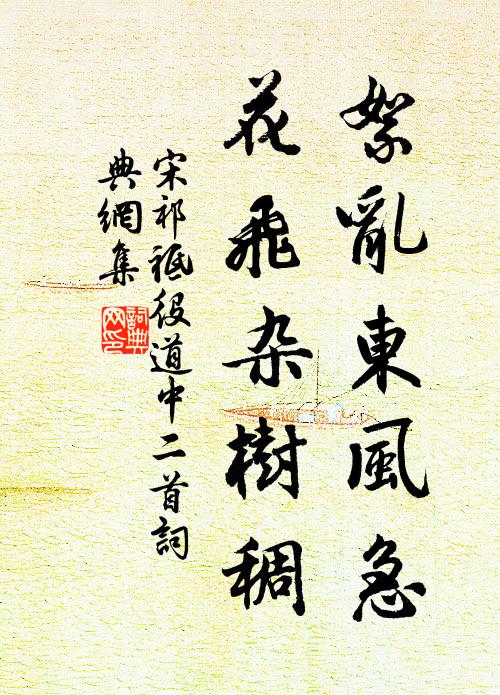 絮亂東風急
花飛杂樹稠
宋祁祗役道中二首詞
典網集
詞典
网印